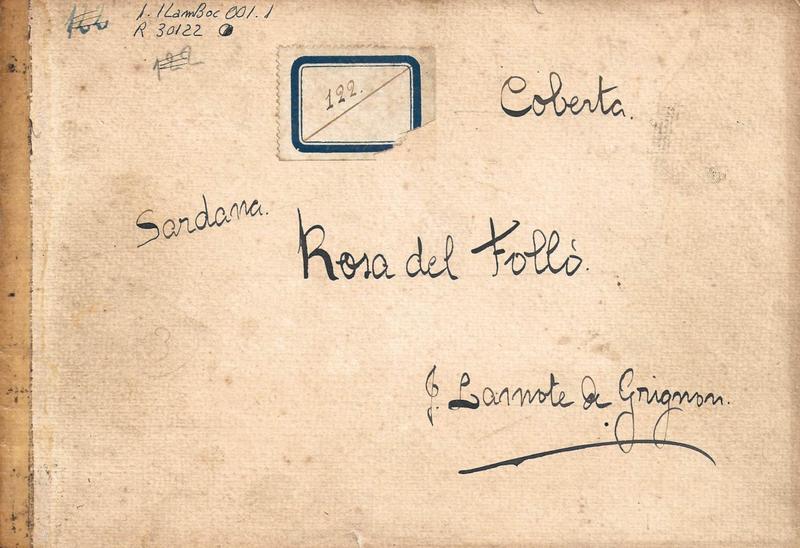 1. 1LamBoc 001.1
R 30122
122
122.
Coberta.
Sardana.
Rosa del Folló.
J. Lamote de Grignon.